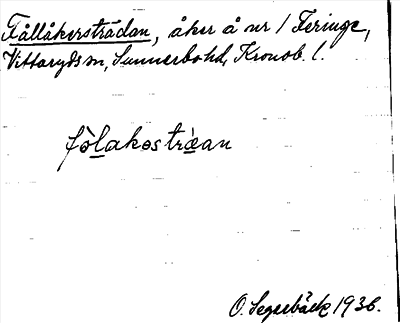 Fållåkersträdan, åker å nr 1 Feringe,
Vittaryds sn, Sunnerbo hd, Kronob. l.
fòlakəstræ̀an
O. Segerbäck 1936.